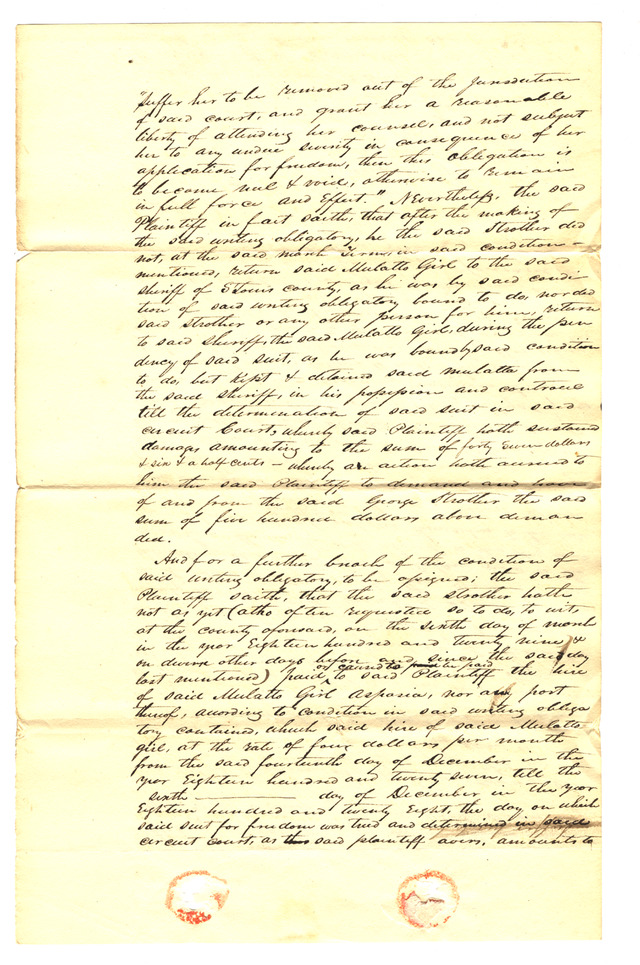 "suffer her to be removed out of the Jurisdiction
of said court, and grant her a reasonable
liberty of attending her counsel, and not subject
her to any undue severity in consequence of her
application for freedom, then this obligation is
to become null & void, otherwise to remain
in full force and effect." Nevertheless, the said
Plaintiff in fact saith, that after the making of
the said writing obligatory, he the said Strother did
not, at the said march Term, in said condition
mentioned, return said Mulatto Girl to the said
sheriff of St Louis county, as he was by said condi-
tion of said writing obligatory bound to do, nor did
said Strother or any other person for him, return
to said sheriff, the said Mulatto Girl, during the pen
dency of said suit, as he was bound by said condition
to do, but kept & detained said mulatto from
the said sheriff, in his possession and controul
till the determination of said suit in said
circuit Court, whereby said Plaintiff hath sustained
damages amounting to the sum of forty seven dollars
& six & a half cents – whereby an action hath accrued to
him the said Plaintiff to demand and have
of and from the said George Strother the said
sum of five hundred dollars above deman
ded.
And for a further breach of the condition of
said writing obligatory, to be assigned; the said
Plaintiff saith, that the said Strother hath
not as yet (altho often requested so to do, to wit,
at the county aforesaid, on the sixth day of march
in the year Eighteen hundred and twenty nine &
on divers other days before and since the said day
last mentioned) paid or caused to be paid to said Plaintiff the hire
of said Mulatto Girl Aspasia, nor any part
thereof, according to condition in said writing obliga
tory contained, which said hire of said Mulatto
girl, at the rate of four dollars per month
from the said fourteenth day of December in the
year Eighteen hundred and twenty seven, till the
sixth day of December in the year
Eighteen hundred and twenty Eight, the day on which
said suit for freedom was tried and determined in said
circuit court, as said plaintiff avers, amounts to